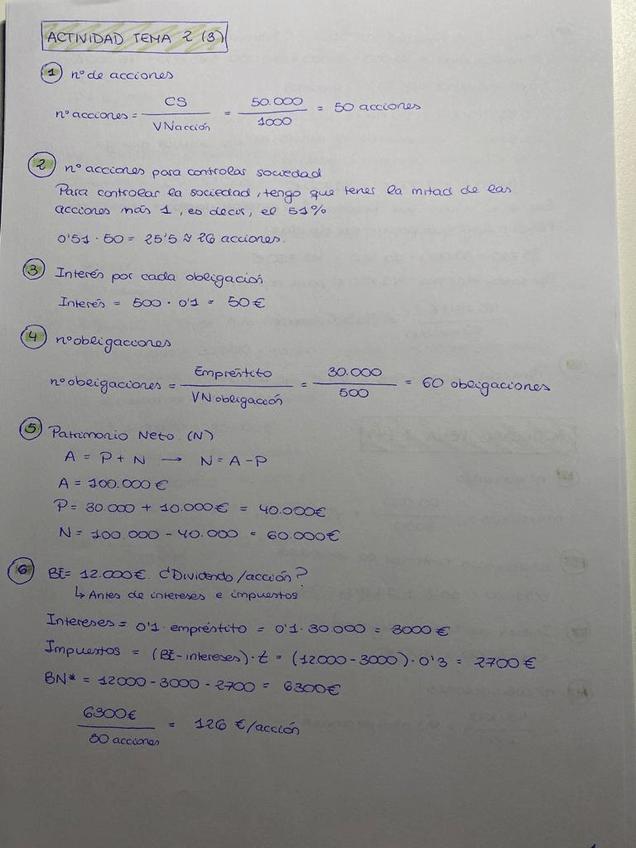 ACTIVIDAD TEMA 2 (3)
1 nº de acciones
nº acciones = CS / VN acción = 50.000 / 1000 = 50 acciones
2 nº acciones para controlar sociedad
Para controlar la sociedad, tengo que tener la mitad de las
acciones más 1, es decir, el 51%
0'51 · 50 = 25'5 ≈ 26 acciones.
3 Interés por cada obligación
Interés = 500 · 0'1 = 50€
4 nº obligaciones
nº obligaciones = Empréstito / VN obligación = 30.000 / 500 = 60 obligaciones
5 Patrimonio Neto (N)
A = P + N → N = A - P
A = 100.000€
P = 30.000 + 10.000€ = 40.000€
N = 100.000 - 40.000 = 60.000€
6 BE = 12.000€. ¿Dividendo/acción?
↳ Antes de intereses e impuestos
Intereses = 0'1 · empréstito = 0'1 · 30.000 = 3000€
Impuestos = (BE - intereses) · t = (12000 - 3000) · 0'3 = 2700€
BN* = 12000 - 3000 - 2700 = 6300€
6300€ / 50 acciones = 126 €/acción